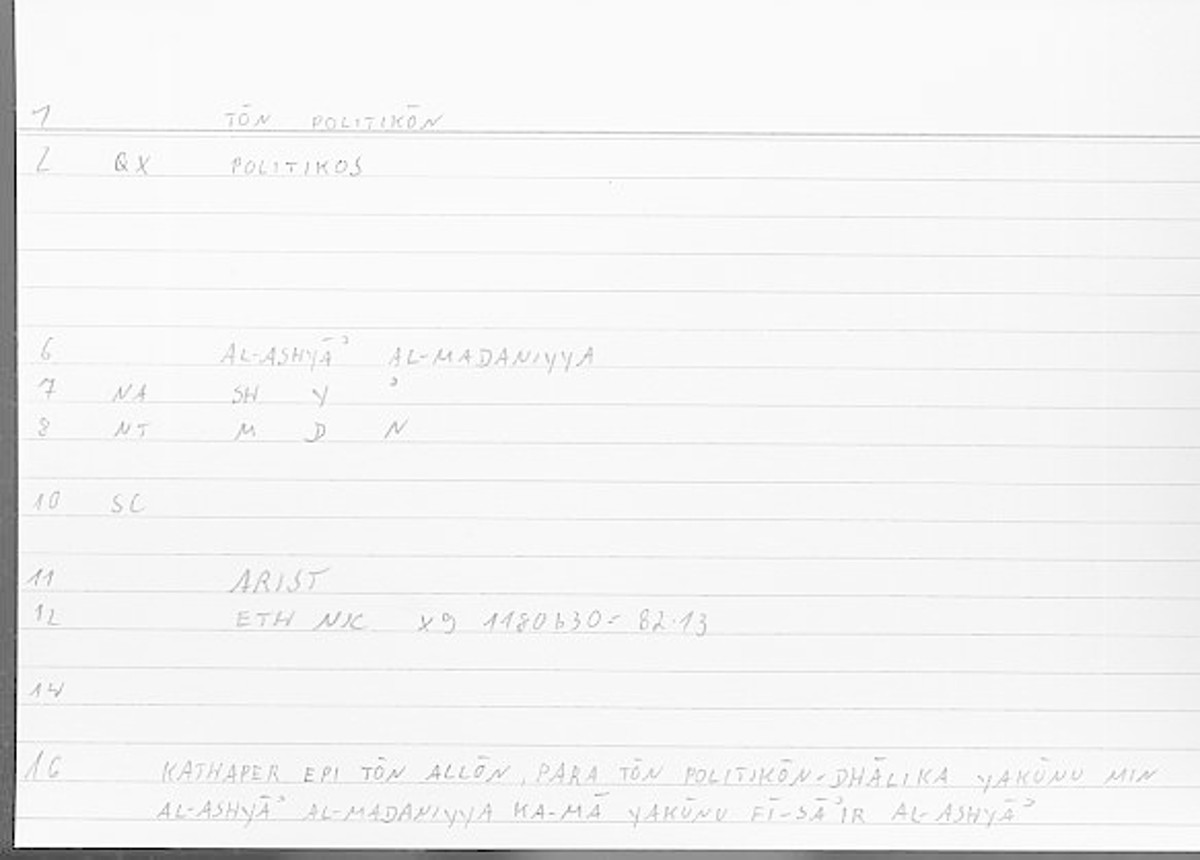 1 TŌN POLITIKŌN
2 QX POLITIKOS
6 AL-ASHYĀʾ AL-MADANIYYA
7 NA SH Y ʾ
8 NT M D N
10 SC
11 ARIST
12 ETH NIC X9 1180b30= 82.13
14
16 KATHAPER EPI TŌN ALLŌN, PARA TŌN POLITIKŌN-DHĀLIKA YAKŪNU MIN
AL-ASHYĀʾ AL-MADANIYYA KA-MĀ YAKŪNU FĪ-SĀʾIR AL-ASHYĀʾ